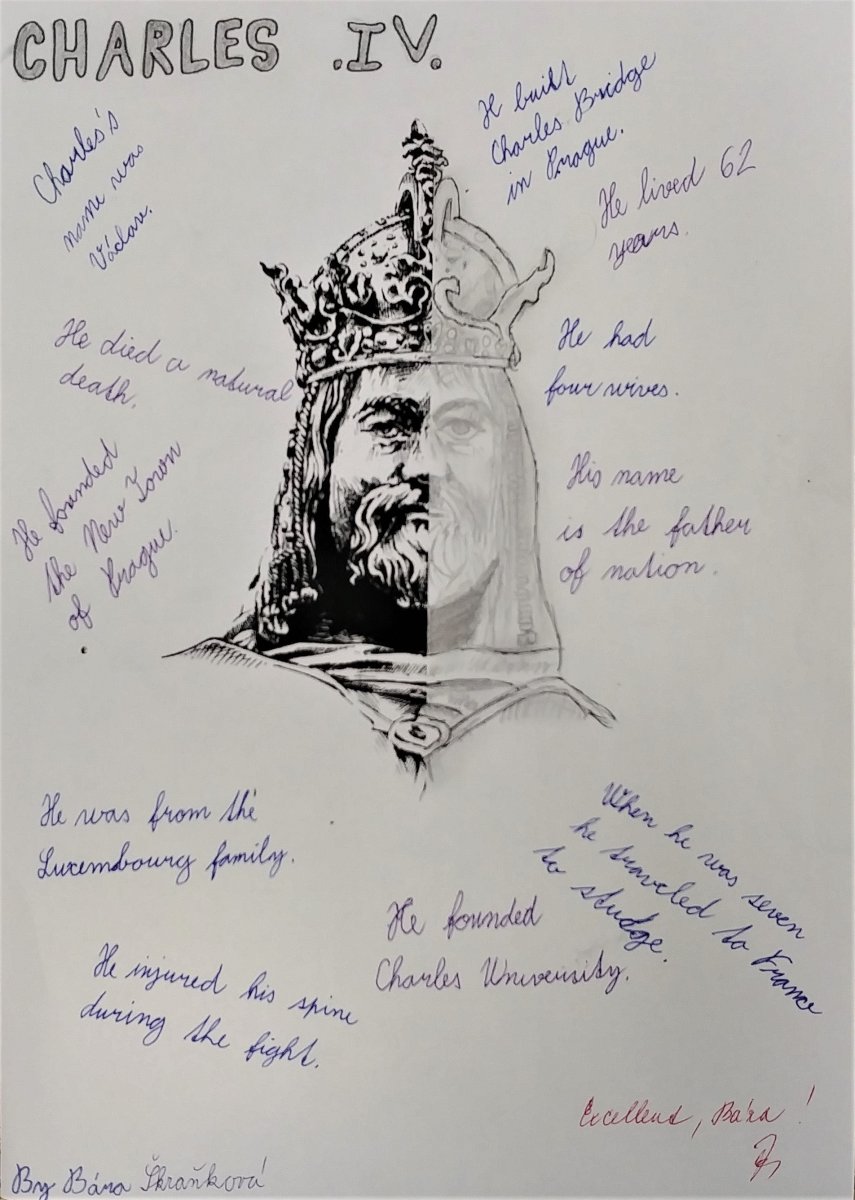 CHARLES .IV.
Charles's
name was
Václav.
He built
Charles Bridge
in Prague.
He lived 62
years.
He died a natural
death.
He had
four wives.
He founded
the New Town
of Prague.
His name
is the father
of nation.
He was from the
Luxembourg family.
When he was seven
he traveled to France
to studge.
He founded
Charles University.
He injured his spine
during the fight.
Excellent, Bára!
By Bára Škraňková